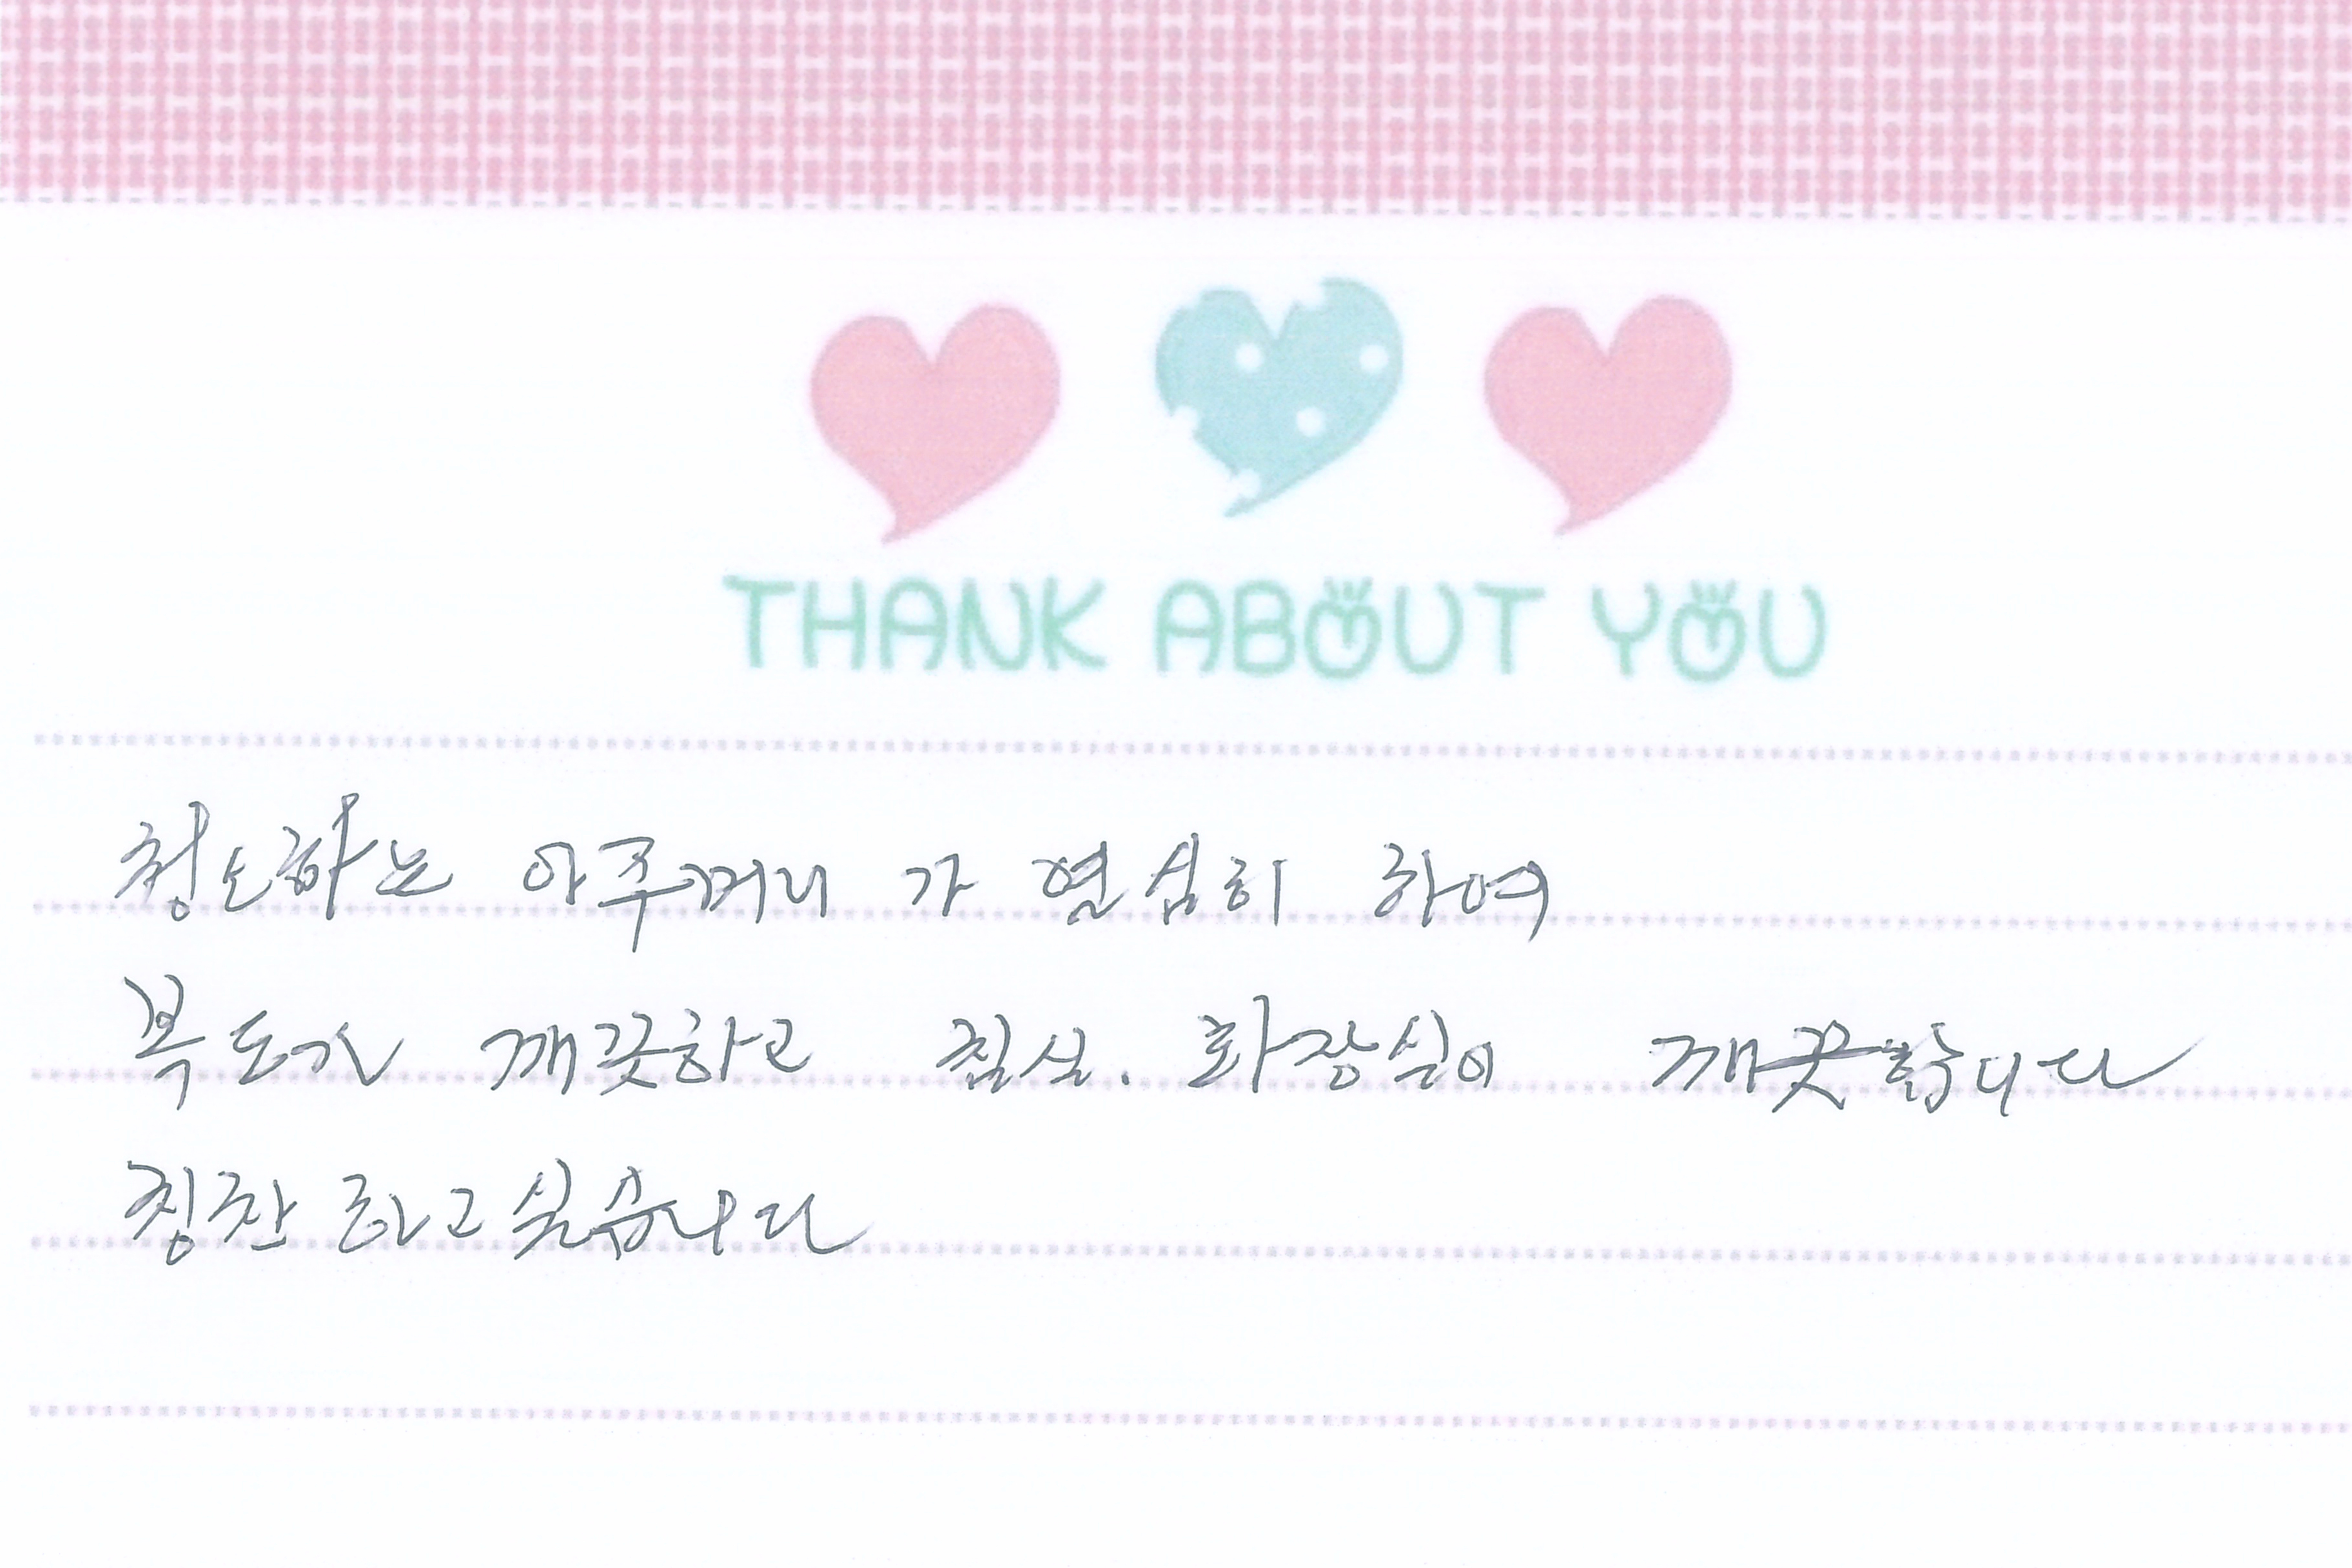 THANK ABOUT YOU
청소하는 아주머니 가 열심히 하여
복도가 깨끗하고 침실. 화장실이 깨끗합니다
칭찬하고싶습니다